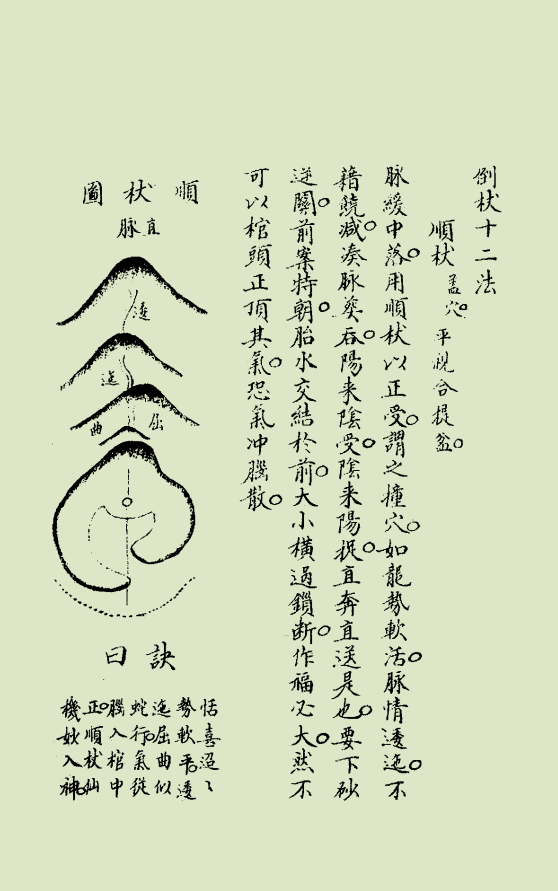 倒杖十二法
順杖 孟穴。平視合提盆。
脉緩中落。用順杖以正受。謂之撞穴。如龍勢軟活。脉情逶迤。不
藉饒減。湊脉𦵏吞。陽来陰受。陰来陽捉。直奔直送是也。要下砂
逆關。前案特朝。胎水交結於前。大小橫過鎖断。作福必大。然不
可以棺頭正頂其氣。恐氣冲腦散。
順杖圖
直脉
逶
迤
屈
曲
訣曰
恬喜迢〻
勢軟平。逶
迤屈曲似
蛇行。氣從
腦入棺中
正。順杖仙
機妙入神。